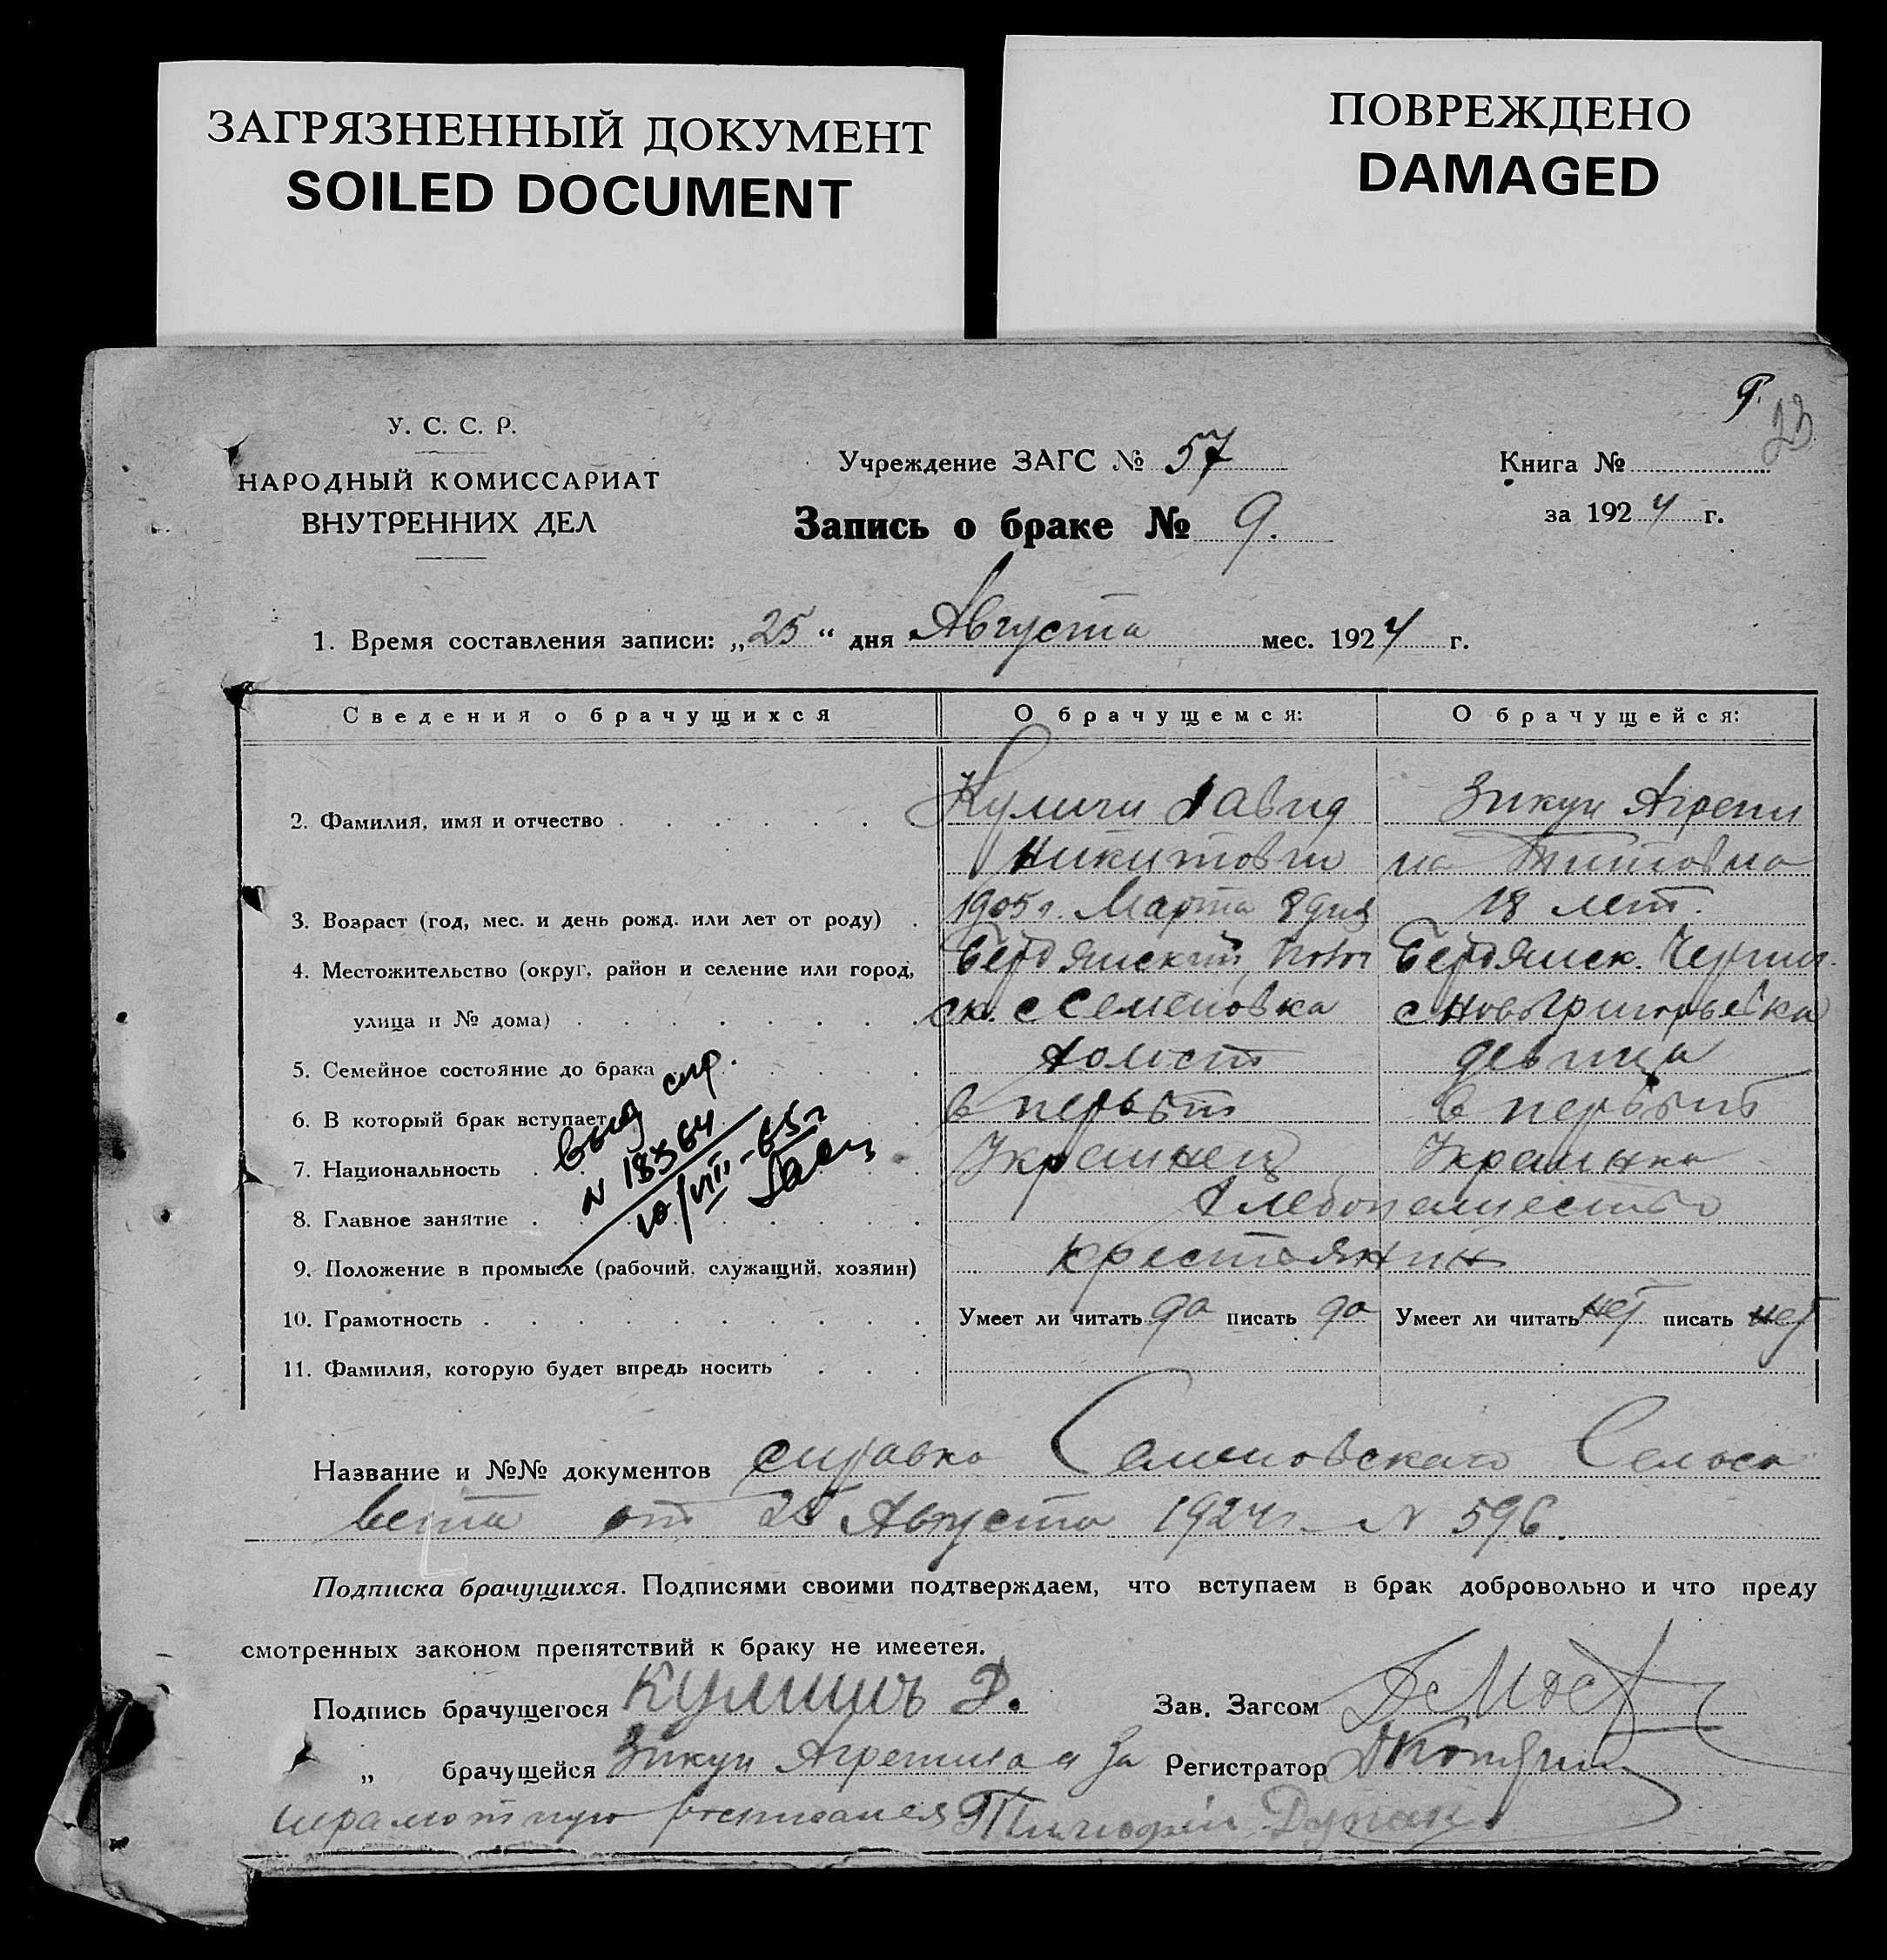 ЗАГРЯЗНЕННЫЙ ДОКУМЕНТ
SOILED DOCUMENT
ПОВРЕЖДЕНО
DAMAGED
9. 23
У. С. С. Р.
НАРОДНЫЙ КОМИССАРИАТ
ВНУТРЕННИХ ДЕЛ
Учреждение ЗАГС № 57
Запись о браке № 9.
Книга №
за 1924 г.
1. Время составления записи: „25“ дня Августа мес. 1924 г.
Сведения о брачущихся О брачущемся: О брачущейся:
2. Фамилия, имя и отчество Давид Зикун Агрепи
на Титовна
3. Возраст (год, мес. и день рожд. или лет от роду) 1905 г. Марта 8 дня 18 лет.
4. Местожительство (округ, район и селение или город, Бердянский Бердянск.
улица и № дома) ск. с Семеновка с Новогригорьевка
5. Семейное состояние до брака холост девица
6. В который брак вступает в первый в первый
7. Национальность Украинец Украинка
8. Главное занятие Хлебопашество
9. Положение в промысле (рабочий, служащий, хозяин) крестьянин
10. Грамотность Умеет ли читать да писать да Умеет ли читать нет писать нет
11. Фамилия, которую будет впредь носить
выд спр.
N 18364
10/VIII-65г
Название и №№ документов справка Семеновскаго Сельсо
вета от 25 Августа 1924 г. N 596.
Подписка брачущихся. Подписями своими подтверждаем, что вступаем в брак добровольно и что преду
смотренных законом препятствий к браку не имеется.
Подпись брачущегося Д. Зав. Загсом
„ брачущейся Зикун Агрепина а за Регистратор